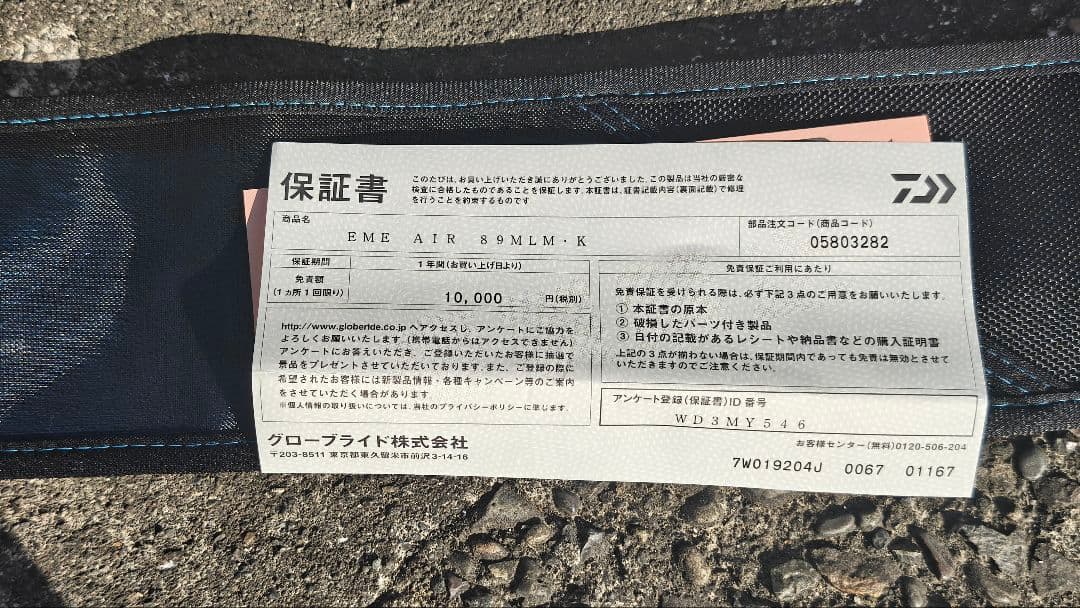 保証書
このたびは、お買い上げいただき誠にありがとうございました。この製品は当社の厳密な
検査に合格したものであることを保証します。本証書は、証書記載内容(裏面記載)で修理
を行うことを約束するものです
商品名
EME AIR 89MLM・K
部品注文コード(商品コード)
05803282
保証期間
1年間(お買い上げ日より)
免責額
(1ヵ所1回限り)
10,000 円(税別)
免責保証ご利用にあたり
免責保証を受けられる際は、必ず下記3点のご用意をお願いいたします。
① 本証書の原本
② 破損したパーツ付き製品
③ 日付の記載があるレシートや納品書などの購入証明書
上記の3点が揃わない場合は、保証期間内であっても免責は無効とさせて
いただきますのでご注意ください。
http://www.globeride.co.jp へアクセスし、アンケートにご協力を
よろしくお願いいたします。(携帯電話からはアクセスできません)
アンケートにお答えいただき、ご登録いただいたお客様に抽選で
景品をプレゼントさせていただいております。また、ご登録の際に
希望されたお客様には新製品情報・各種キャンペーン等のご案内
をさせていただく場合があります。
※個人情報の取り扱いについては、当社のプライバシーポリシーに準じます。
アンケート登録(保証書)ID番号
WD3MY546
グローブライド株式会社
〒203-8511 東京都東久留米市前沢3-14-16
お客様センター(無料)0120-506-204
7W019204J 0067 01167